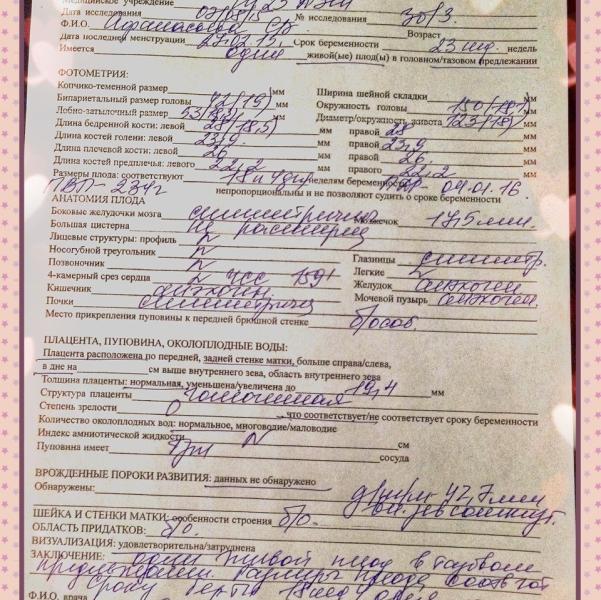 Медицинское учреждение
Дата исследования 07/08/15 № исследования
Ф.И.О. Возраст
Дата последней менструации 27.02.15. Срок беременности 23 нед. недель
Имеется один живой(ые) плод(ы) в головном/тазовом предлежании
ФОТОМЕТРИЯ:
Копчико-теменной размер мм Ширина шейной складки мм
Бипариетальный размер головы 42 (19) мм Окружность головы 150 мм
Лобно-затылочный размер мм Диаметр/окружность живота 123 мм
Длина бедренной кости: левой 28 (18,5) мм правой 28 мм
Длина костей голени: левой 23,9 мм правой 23,9 мм
Длина плечевой кости: левой 26 мм правой 26 мм
Длина костей предплечья: левого 22,2 мм правого 22,2 мм
Размеры плода: соответствуют неделям беременности 04.01.16.
ПВП - 234 г непропорциональны и не позволяют судить о сроке беременности
АНАТОМИЯ ПЛОДА
Боковые желудочки мозга симметричны Мозжечок 17,5 мм.
Большая цистерна не расширена
Лицевые структуры: профиль N
Носогубной треугольник N Глазницы симметр.
Позвоночник N Легкие
4-камерный срез сердца N ЧСС 159 Желудок эхоген.
Кишечник Мочевой пузырь эхоген.
Почки симметричны
Место прикрепления пуповины к передней брюшной стенке б/особ.
ПЛАЦЕНТА, ПУПОВИНА, ОКОЛОПЛОДНЫЕ ВОДЫ:
Плацента расположена по передней, задней стенке матки, больше справа/слева,
в дне на см выше внутреннего зева, область внутреннего зева
Толщина плаценты: нормальная, уменьшена/увеличена до 19,4 мм
Структура плаценты гомогенная
Степень зрелости 0 что соответствует/не соответствует сроку беременности
Количество околоплодных вод: нормальное, многоводие/маловодие
Индекс амниотической жидкости N см
Пуповина имеет три сосуда
ВРОЖДЕННЫЕ ПОРОКИ РАЗВИТИЯ: данных не обнаружено
Обнаружены: 42,7 мм
вн. зев сомкнут.
ШЕЙКА И СТЕНКИ МАТКИ: особенности строения б/о.
ОБЛАСТЬ ПРИДАТКОВ: б/о.
ВИЗУАЛИЗАЦИЯ: удовлетворительна/затруднена
ЗАКЛЮЧЕНИЕ: один живой плод в тазовом
предлежании. Размеры плода соотв-ют
сроку 18 нед
Ф.И.О. врача